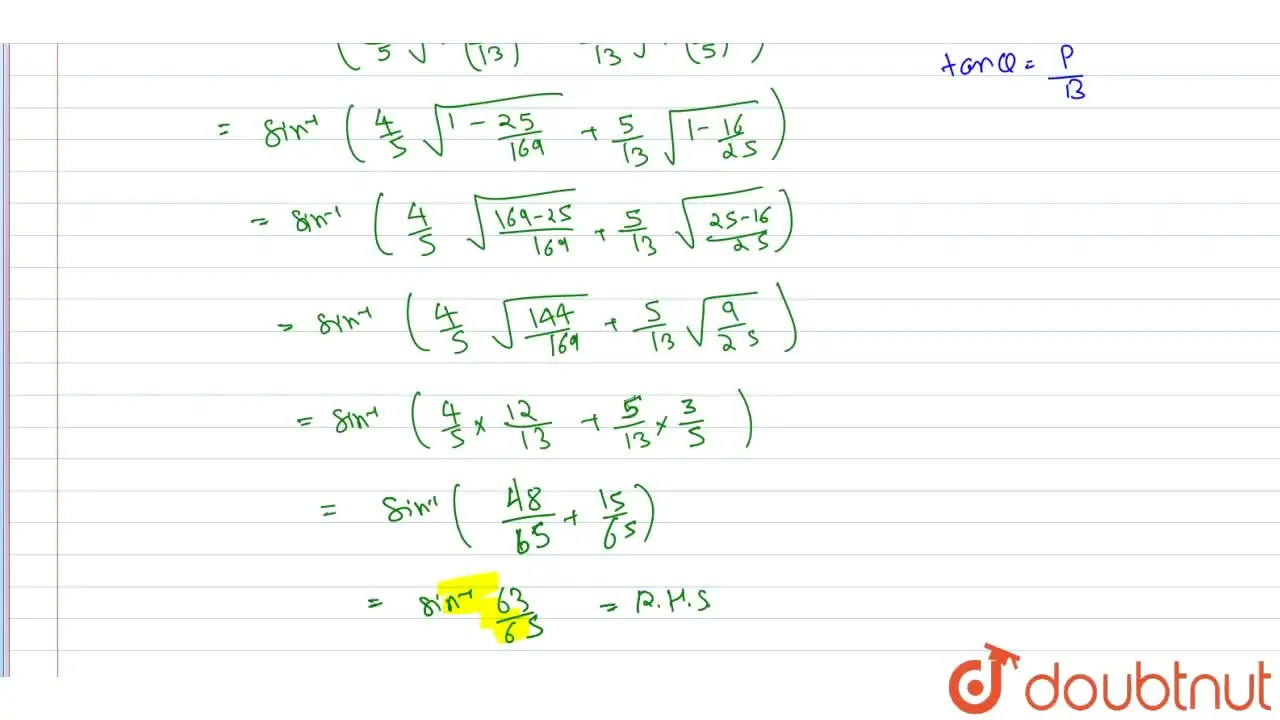 ( 5 √ (13) 13 √ (5) )
tanθ = P/B
= sin⁻¹ ( 4/5 √(1 - 25/169) + 5/13 √(1 - 16/25) )
= sin⁻¹ ( 4/5 √((169-25)/169) + 5/13 √((25-16)/25) )
= sin⁻¹ ( 4/5 √(144/169) + 5/13 √(9/25) )
= sin⁻¹ ( 4/5 × 12/13 + 5/13 × 3/5 )
= sin⁻¹ ( 48/65 + 15/65 )
= sin⁻¹ 63/65 = R.H.S
doubtnut